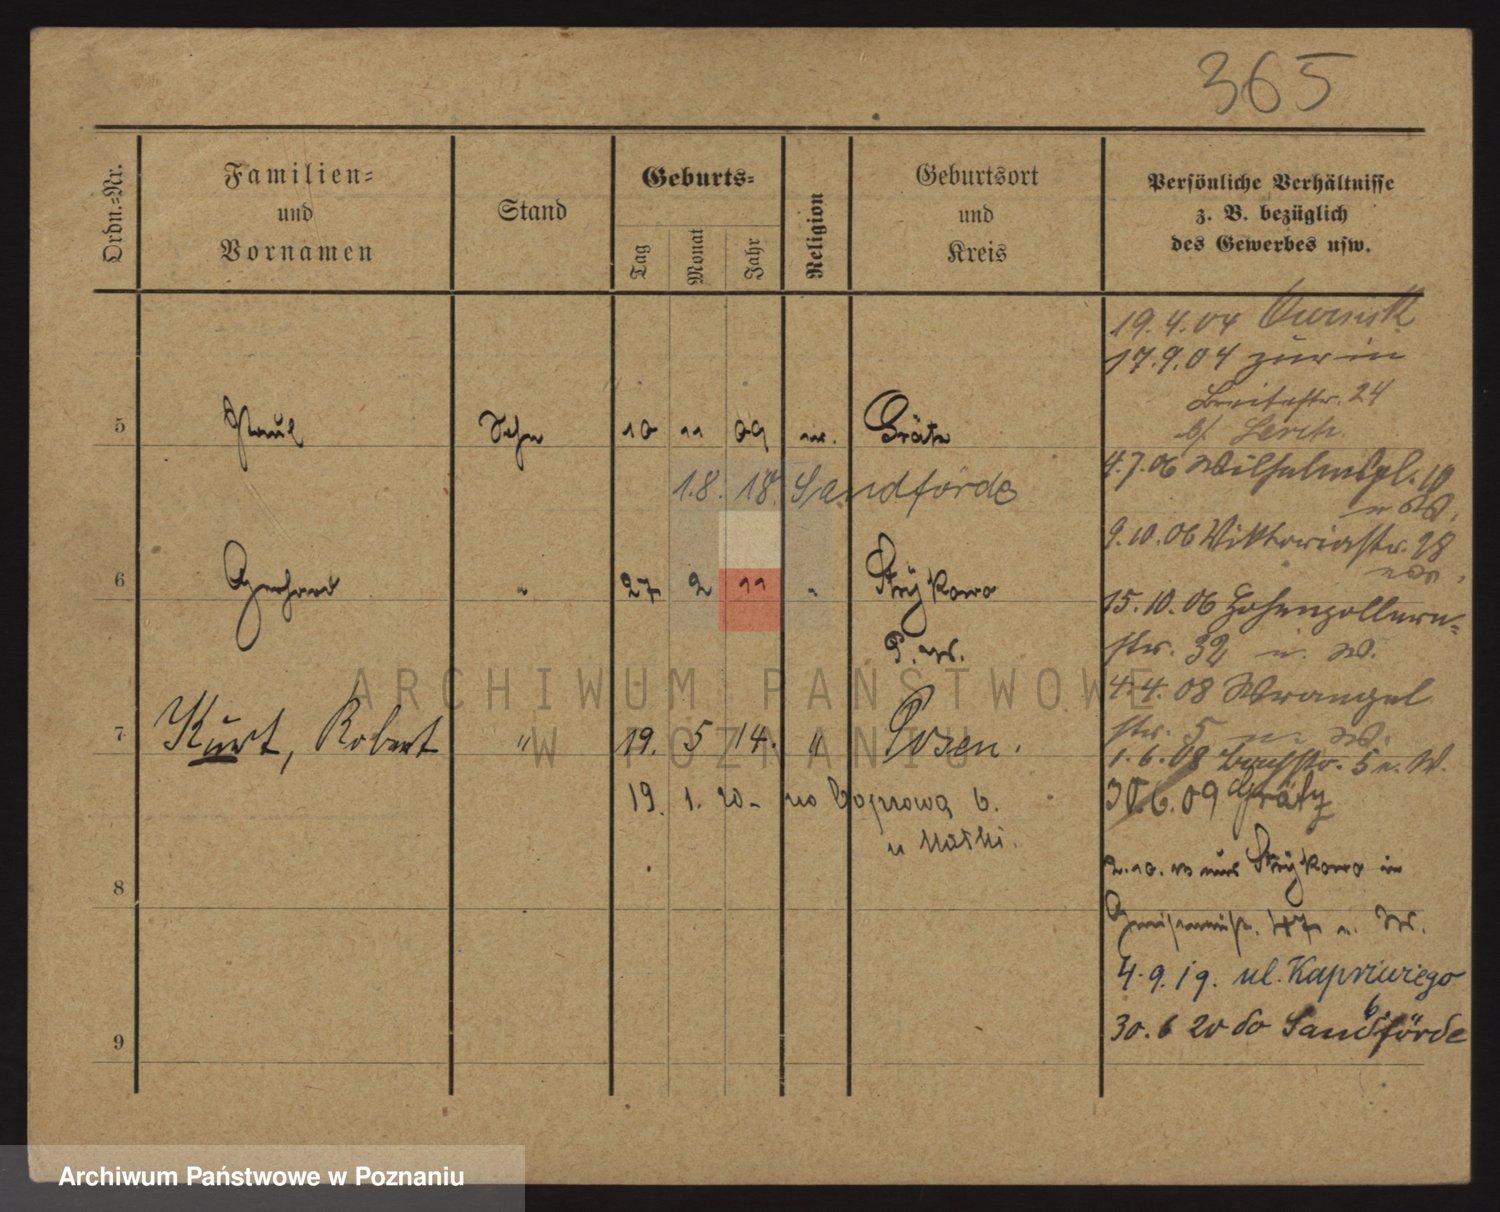 365
Ordn.-Nr.
Familien-
und
Vornamen
Stand
Geburts-
Tag
Monat
Jahr
Religion
Geburtsort
und
Kreis
Persönliche Verhältnisse
z. B. bezüglich
des Gewerbes usw.
19.4.04
17.9.04 zur in
Breitestr. 24
b/ Lerch.
5 Paul Sohn 10 11 09 Grätz
4.7.06 Wilhelmspl. 10
1.8. 18. Sandförde
9.10.06 Viktoriastr. 28
6 Gerhard " 27 2 11 " Strÿkowo
15.10.06 Hohenzollern-
str. 32 u. W.
4.4.08 Wrangel
str. 5 u. W.
7 Kurt, Robert " 19. 5 14. " Posen.
1.6.08 5 u. W.
19. 1. 20
30.6.09 Grätz
2.10. aus Strÿkowo in
8
47 u. W.
4.9.19. ul. Kapriwiego
6.
30.6 20 do Sandförde
9
ARCHIWUM PAŃSTWOWE
W POZNANIU
Archiwum Państwowe w Poznaniu